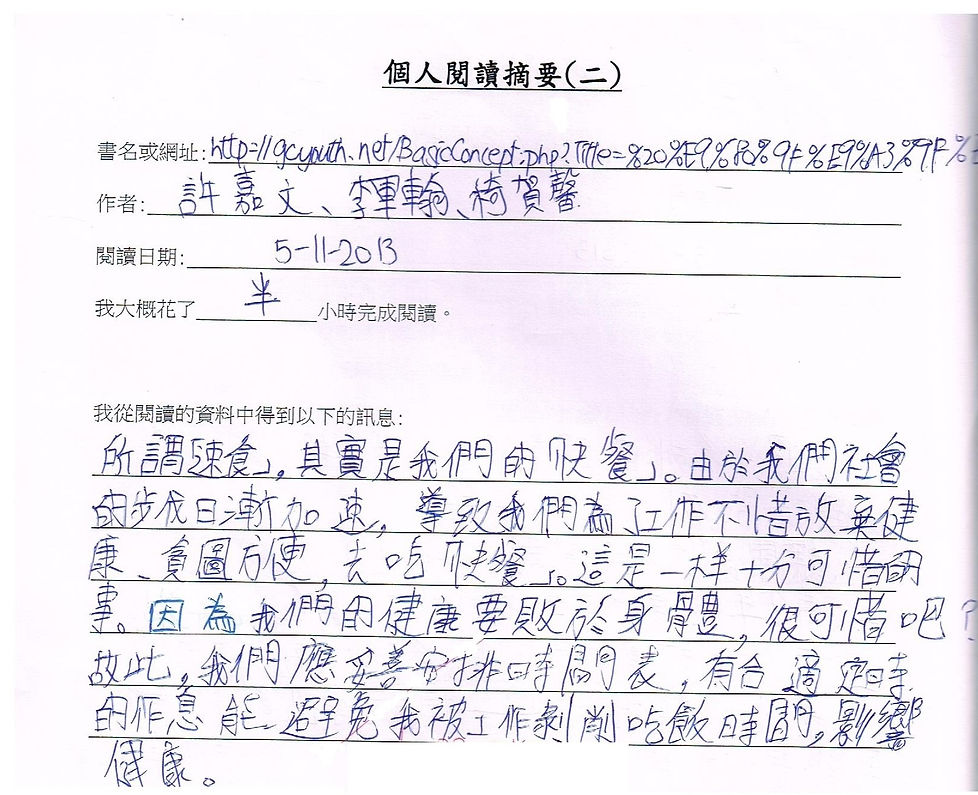 個人閱讀摘要(二)
書名或網址: http://gcyouth.net/BasicConcept.php?Title=%20%E9%80%9F%E9%A3%9F%
作者: 許嘉文、李軍翰、綺賀馨
閱讀日期: 5-11-2013
我大概花了 半 小時完成閱讀。
我從閱讀的資料中得到以下的訊息:
所謂「速食」,其實是我們的「快餐」。由於我們社會
的步伐日漸加速,導致我們為了工作不惜放棄健
康、貪圖方便,去吃「快餐」。這是一樣十分可惜的
事。因為我們的健康要敗於身體,很可惜吧?
故此,我們應妥善安排時間表,有合適定時
的作息能避免我被工作剝削吃飯時間,影響
健康。